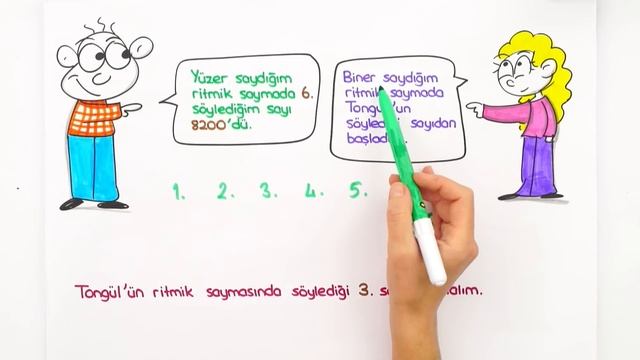 Yüzer saydığım
ritmik saymada 6.
söylediğim sayı
8200'dü.
Biner saydığım
ritmik saymada
söyle sayıdan
1. 2. 3. 4. 5.
Tongül'ün ritmik saymasında söylediği 3.